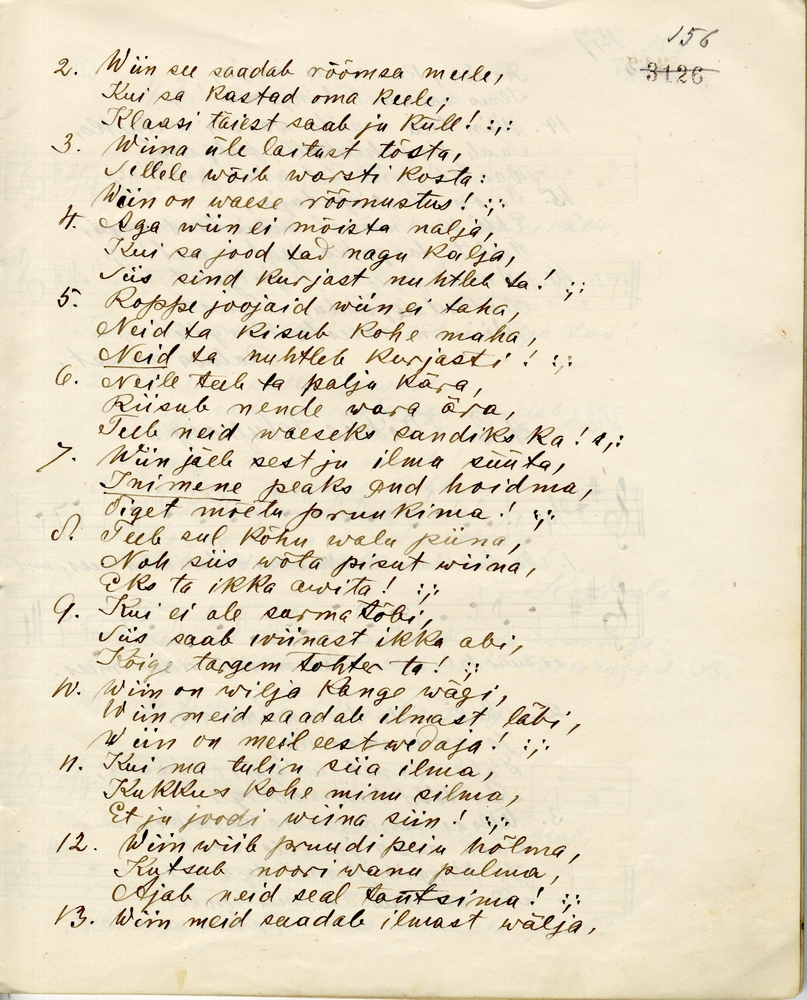 156
3126
2. Wiin see saadab röömsa meele,
Kui sa kastad oma keele;
Klaasi täiest saab ju küll! :,:
3. Wiina üle laitust tõsta,
Sellele wõib warsti kosta:
Wiin on waese röömustus! :,:
4. Aga wiin ei mõista nalja,
Kui sa jood tad nagu kalja,
Siis sind kurjast nuhtleb ta! :,:
5. Roppe joojaid wiin ei taha,
Neid ta kisub kohe maha,
Neid ta nuhtleb kurjasti! :,:
6. Neile teeb ta palju kära,
Riisub nende wara ära,
Teeb neid waeseks sandiks ka! :,:
7. Wiin jääb sest ju ilma süüta,
Inimene peaks end hoidma,
Õiget mõetu pruukima! :,:
8. Teeb sul kõhu walu piina,
Noh siis wõta pisut wiina,
Eks ta ikka awita! :,:
9. Kui ei ole surma tõbi,
Siis saab wiinast ikka abi,
Kõige targem tohter ta! :,:
10. Wiin on wilja kange wägi,
Wiin meid saadab ilmast läbi,
Wiin on meil eestwedaja! :,:
11. Kui ma tulin siia ilma,
Kukkus kohe minu silma,
Et ju joodi wiina siin! :,:
12. Wiin wiib pruudi peiu hõlma,
Kutsub noori wanu pulma,
Ajab neid seal tantsima! :,:
13. Wiin meid saadab ilmast wälja,